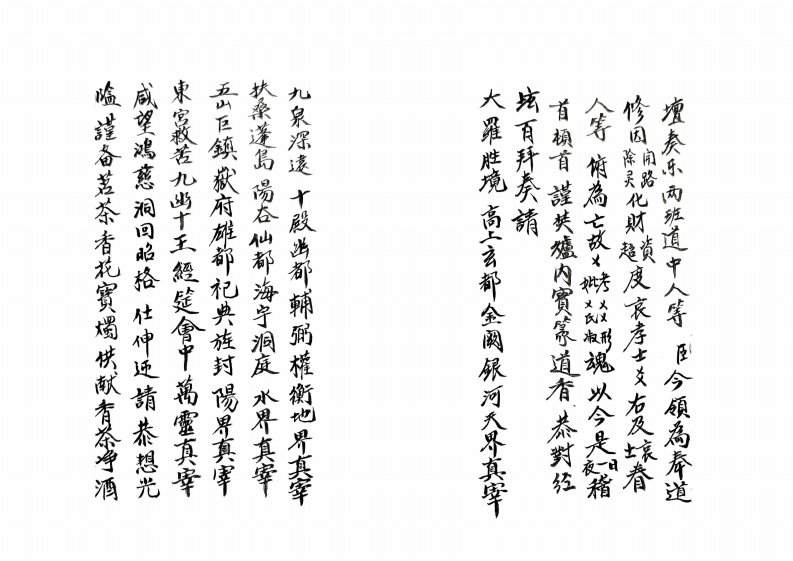 壇奏乐两班道中人等 臣今領為奉道
修因開路除灵化財超資度哀孝士㐅右及哀士眷
人等 俯為亡故㐅考㐅㐅形妣㐅氏淑魂 以今是一日夜稽
首頓首謹焚爐內實篆道香 恭對经
坛百拜奏請
大羅胜境 高上玄都金闕銀河天界真宰
九泉深遠 十殿幽都輔弼權衡地界真宰
扶桑蓬島 陽谷仙都海宁洞庭 水界真宰
五山巨鎮 嶽府雄都祀典旌封 陽界真宰
東宮救苦九幽十王 經筵會中 萬靈真宰
咸望鴻慈洞回昭格 仕伸迎請恭想光
臨謹备茗茶香花寶燭供献香茶净酒